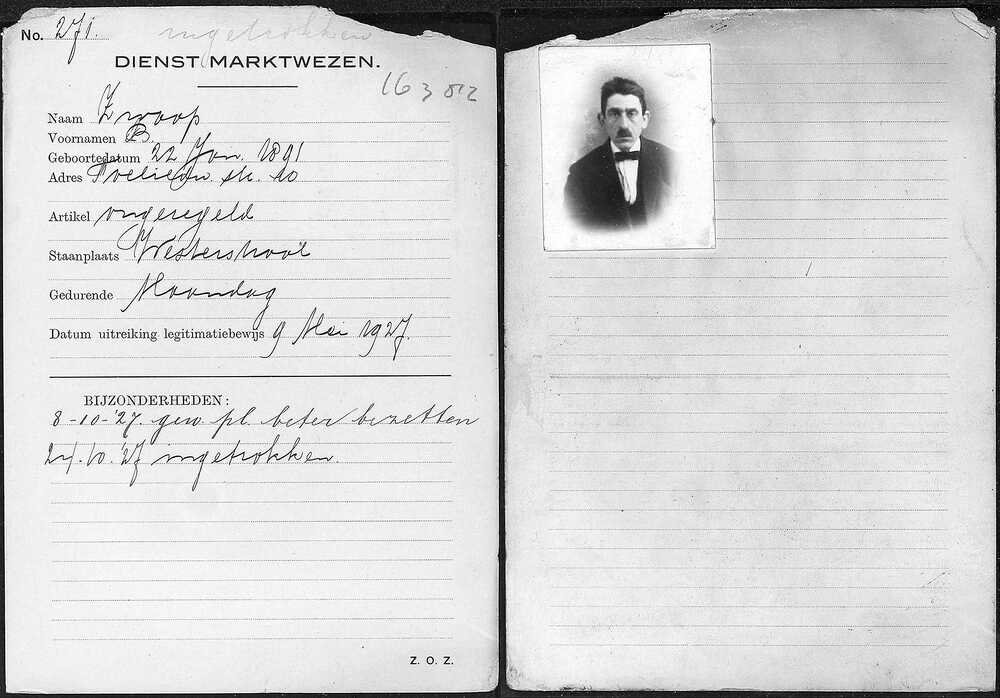 No. 271.
ingetrokken
DIENST MARKTWEZEN.
163 812
Naam Zwaap
Voornamen B.
Geboortedatum 22 Jan. 1891
Adres str. 10
Artikel ongeregeld
Staanplaats Westerstraat
Gedurende Maandag
Datum uitreiking legitimatiebewijs 9 Mei 1927.
BIJZONDERHEDEN:
8-10-'27. gew. pl. beter bezetten
24.10.'27 ingetrokken.
Z. O. Z.